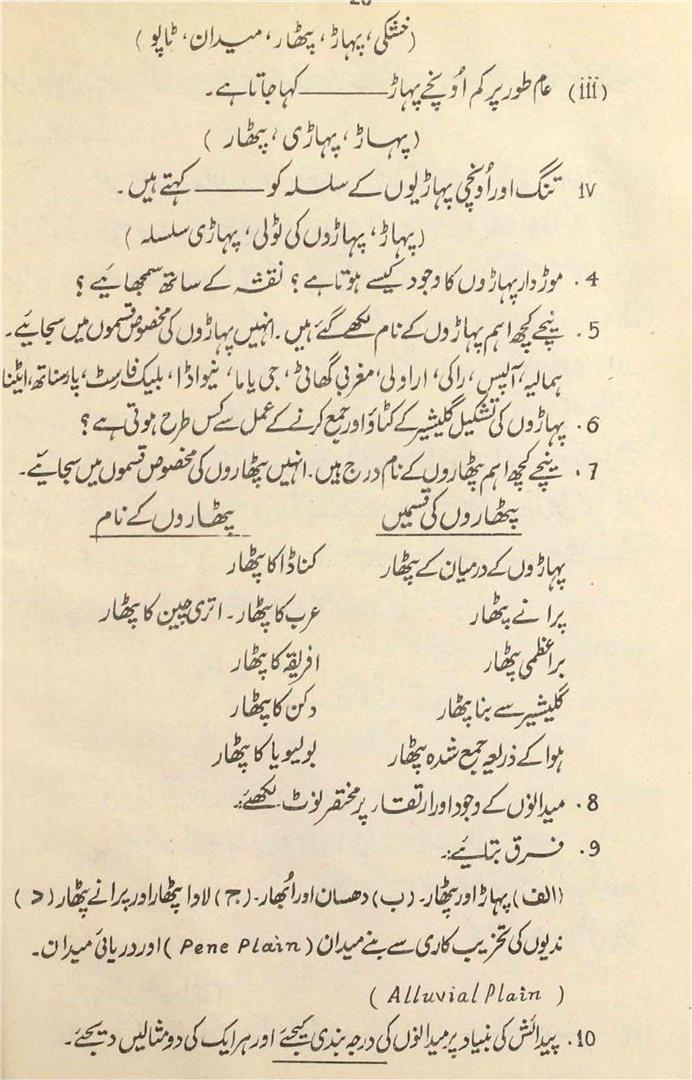 (خشکی، پہاڑ، پٹھار، میدان، ٹاپو)
(iii) عام طور پر کم اُونچے پہاڑ ــــــــــ کہا جاتا ہے۔
(پہاڑ، پہاڑی، پٹھار)
iv تنگ اور اُونچی پہاڑیوں کے سلسلہ کو ــــــــ کہتے ہیں۔
(پہاڑ، پہاڑوں کی ٹولی، پہاڑی سلسلہ)
4. موڑدار پہاڑوں کا وجود کیسے ہوتا ہے؟ نقشہ کے ساتھ سمجھائیے؟
5. نیچے کچھ اہم پہاڑوں کے نام لکھے گئے ہیں۔ انہیں پہاڑوں کی مخصوص قسموں میں سجائیے۔
ہمالیہ، آلپس، راکی، اراولی، مغربی گھاٹی، جی یاما، نیواڈا، بلیک فارسٹ، پارسناتھ، ایٹنا
6. پہاڑوں کی تشکیل گلیشیر کے کٹاؤ اور جمع کرنے کے عمل سے کس طرح ہوتی ہے؟
7. نیچے کچھ اہم پٹھاروں کے نام درج ہیں۔ انہیں پٹھاروں کی مخصوص قسموں میں سجائیے۔
پٹھاروں کی قسمیں پٹھاروں کے نام
پہاڑوں کے درمیان کے پٹھار کناڈا کا پٹھار
پرانے پٹھار عرب کا پٹھار۔ اتری چین کا پٹھار
براعظمی پٹھار افریقہ کا پٹھار
گلیشیر سے بنا پٹھار دکن کا پٹھار
ہوا کے ذریعہ جمع شدہ پٹھار بولیویا کا پٹھار
8. میدانوں کے وجود اور ارتقار پر مختصر نوٹ لکھئے:
9. فرق بتائیے:
(الف) پہاڑ اور پٹھار۔ (ب) دھسان اور اُبھار۔ (ج) لاوا پٹھار اور پرانے پٹھار (د)
ندیوں کی تخریب کاری سے بنے میدان (Pene Plain) اور دریائی میدان۔
(Alluvial Plain)
10. پیدائش کی بنیاد پر میدانوں کی درجہ بندی کیجئے اور ہر ایک کی دو مثالیں دیجئے۔